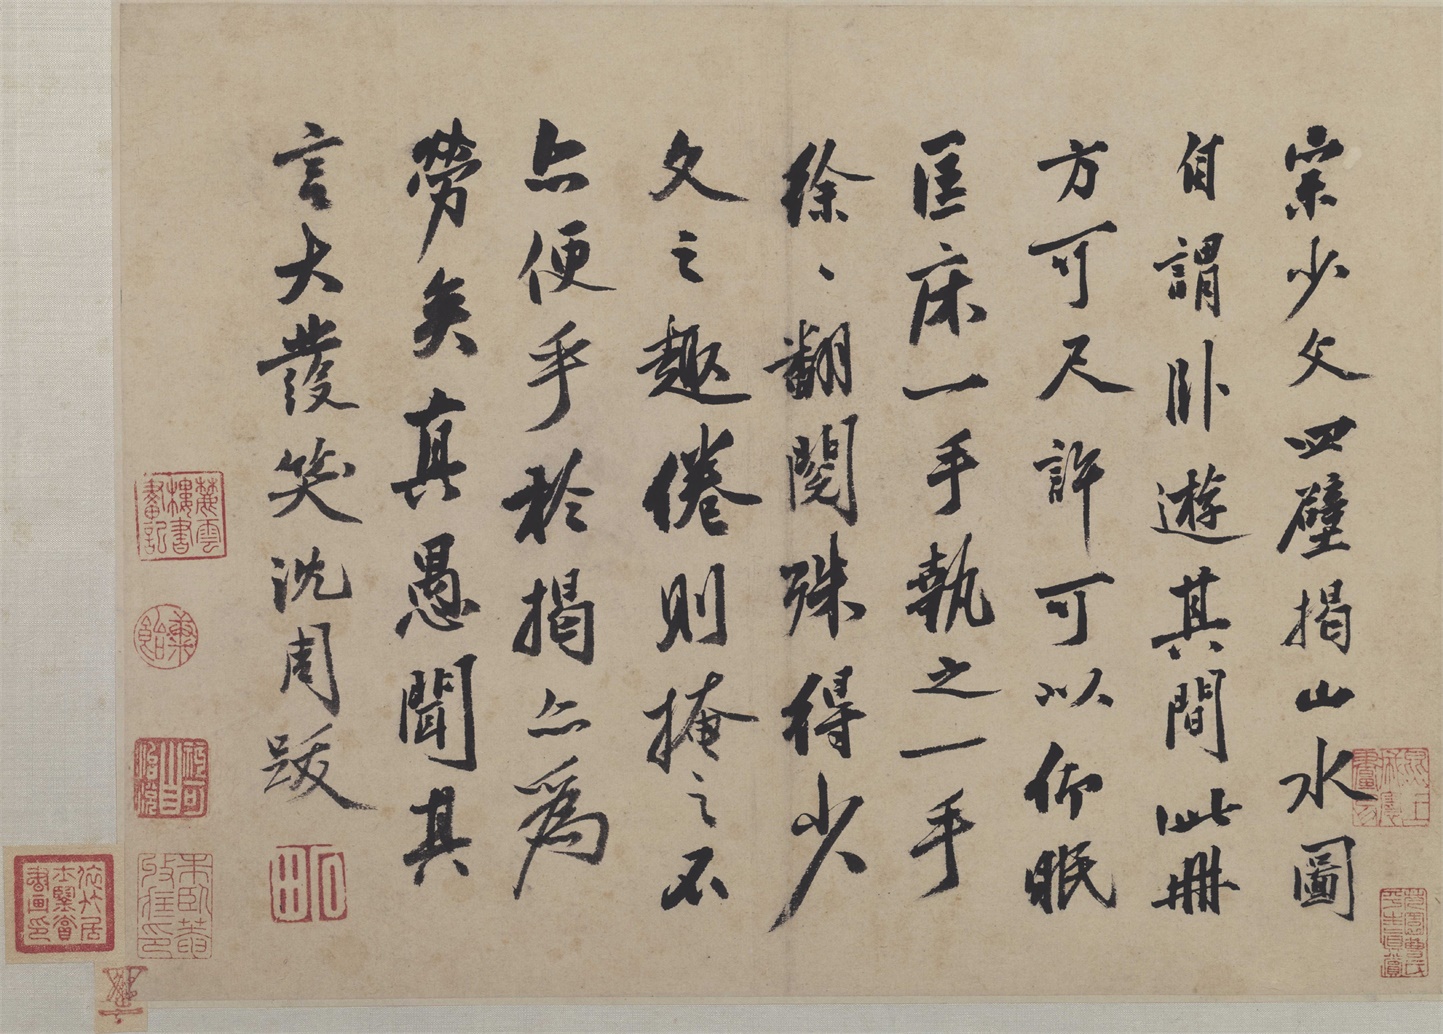 宗少文四壁揭山水圖
自謂卧遊其間此冊
方可尺許可以仰眠
匡床一手執之一手
徐、翻閱殊得少
文之趣倦則掩之不
亦便乎於揭亦為
勞矣真愚聞其
言大發笑沈周跋
石田
麓雲樓書畫記